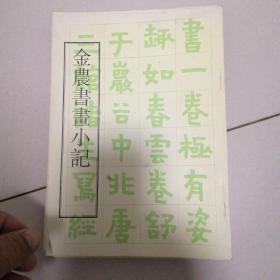 金農書畫小記
書一卷極有姿
趣如春雲卷舒
于巖谷中北唐
二
寫經